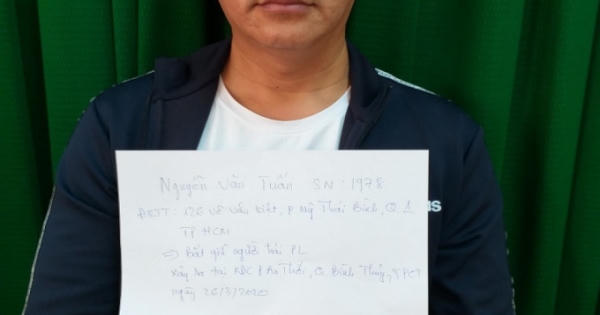 Nguyễn Văn Tuấn SN: 1978
ĐKTT: 126 Võ Văn Kiệt, P Mỹ Thái Bình, Q 1
TP HCM
=> Bắt giữ người trái PL
xảy ra tại KDC P An Thới, Q. Bình Thủy, TPCT
ngày 26/3/2020